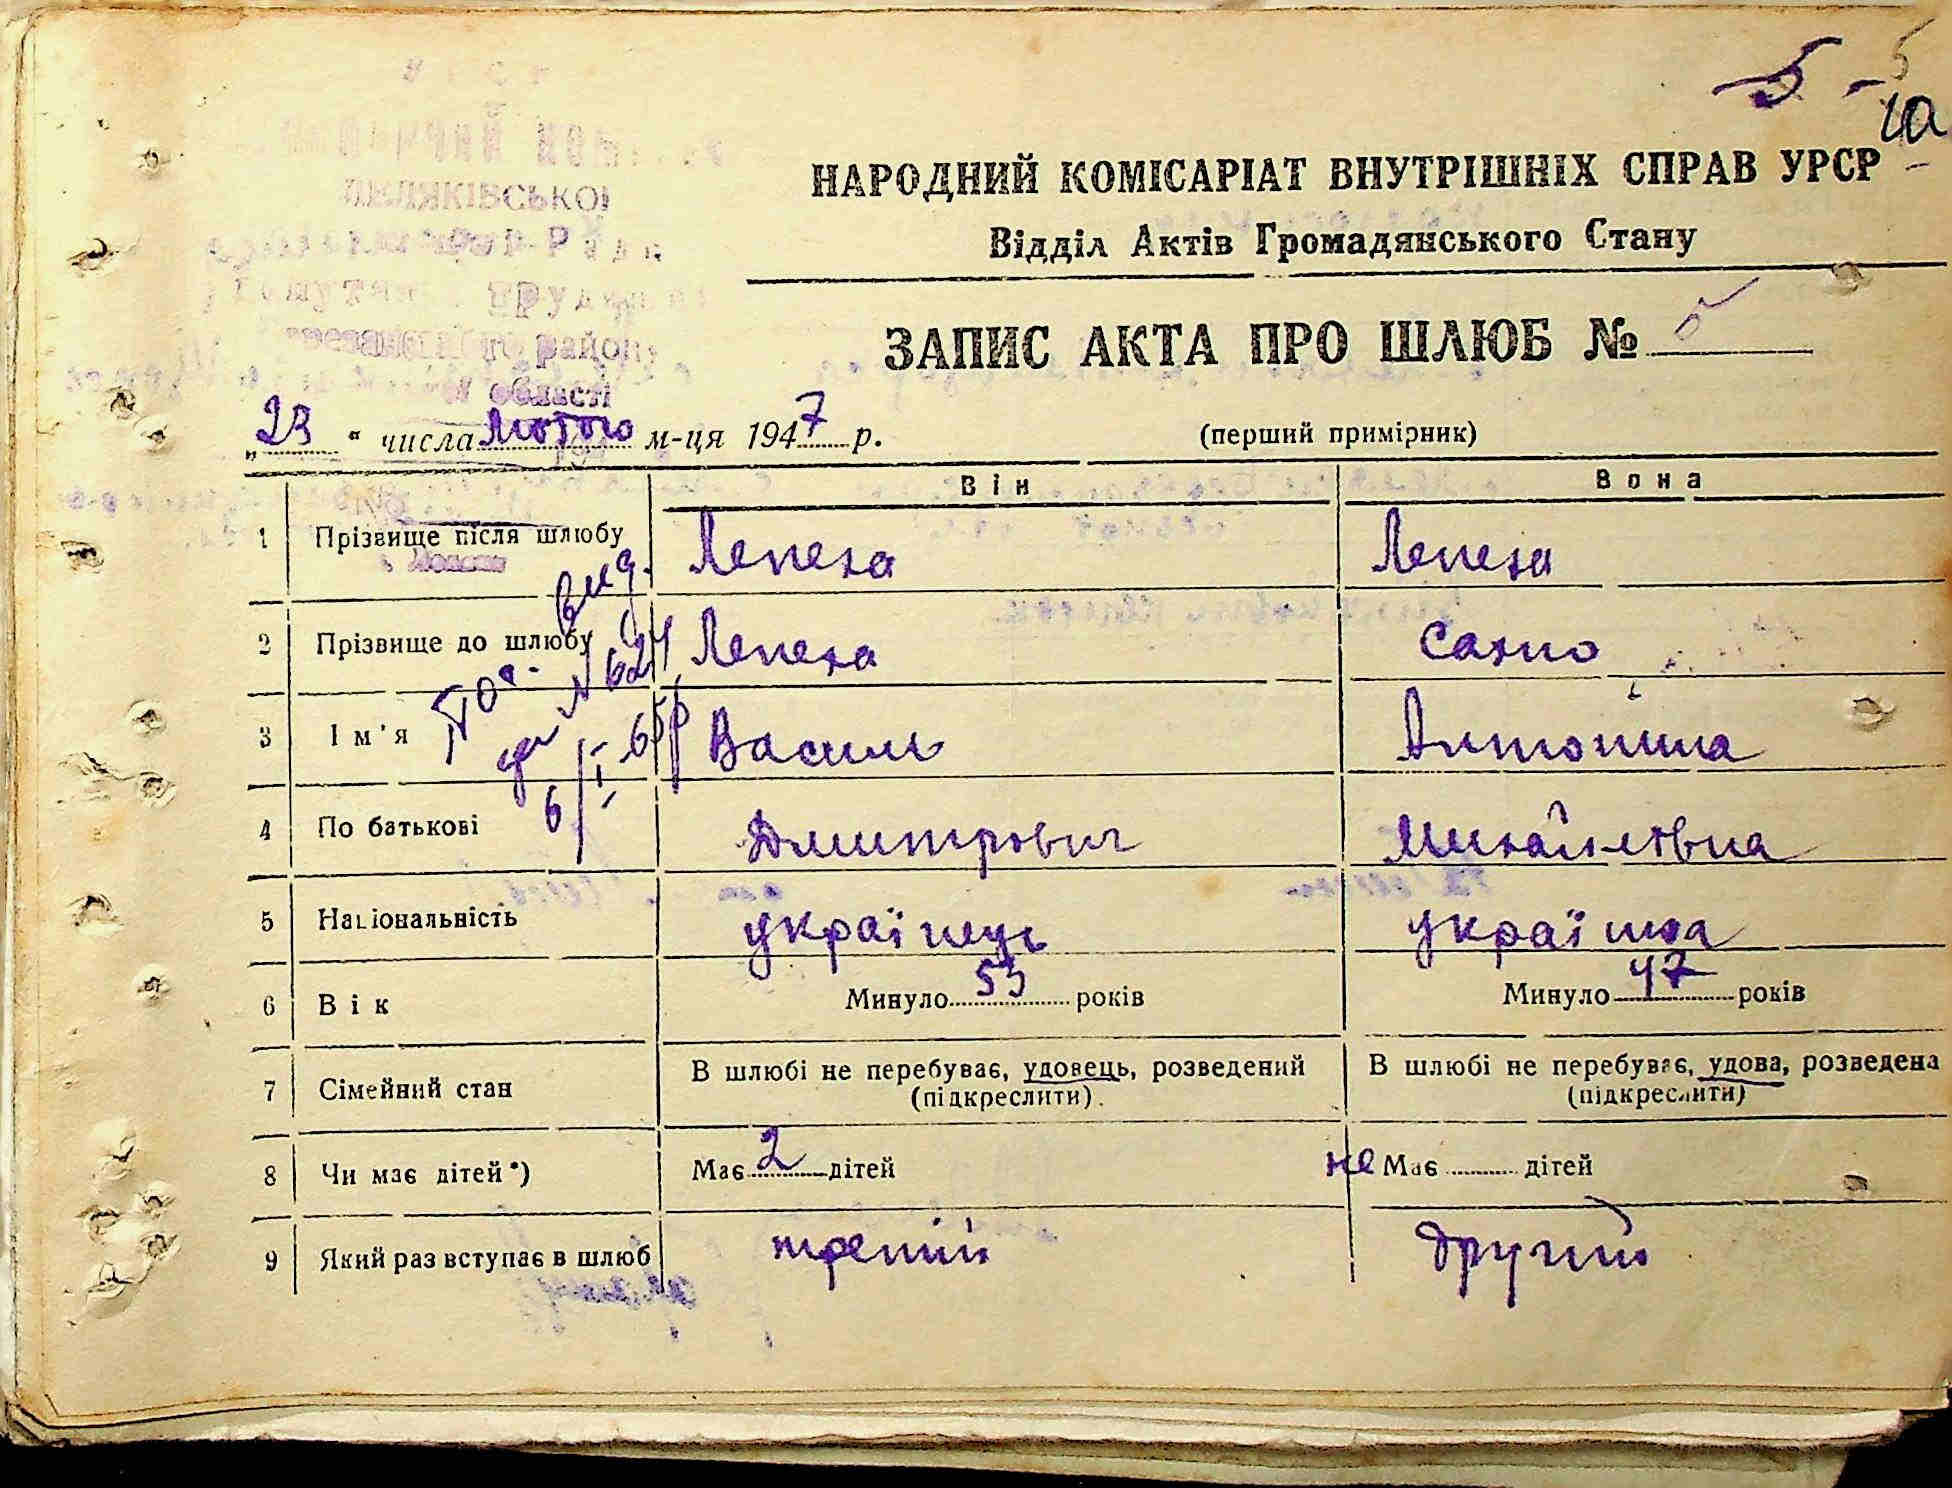 5 -
5
10
НАРОДНИЙ КОМІСАРІАТ ВНУТРІШНІХ СПРАВ УРСР
Відділ Актів Громадянського Стану
ЗАПИС АКТА ПРО ШЛЮБ № 5
"23" числа Лютого м-ця 1947 р.
(перший примірник)
Він
Вона
1 Прізвище після шлюбу Лепеха Лепеха
2 Прізвище до шлюбу Лепеха Сахно
3 Ім'я Василь Антоніна
4 По батькові Дмитрович Михайлівна
5 Національність українець українка
6 Вік Минуло 53 років Минуло 47 років
7 Сімейний стан В шлюбі не перебуває, удовець, розведений (підкреслити). В шлюбі не перебуває, удова, розведена (підкреслити)
8 Чи має дітей*) Має 2 дітей не Має дітей
9 Який раз вступає в шлюб третій другий
вид.
№ 624
6/I-65р
області